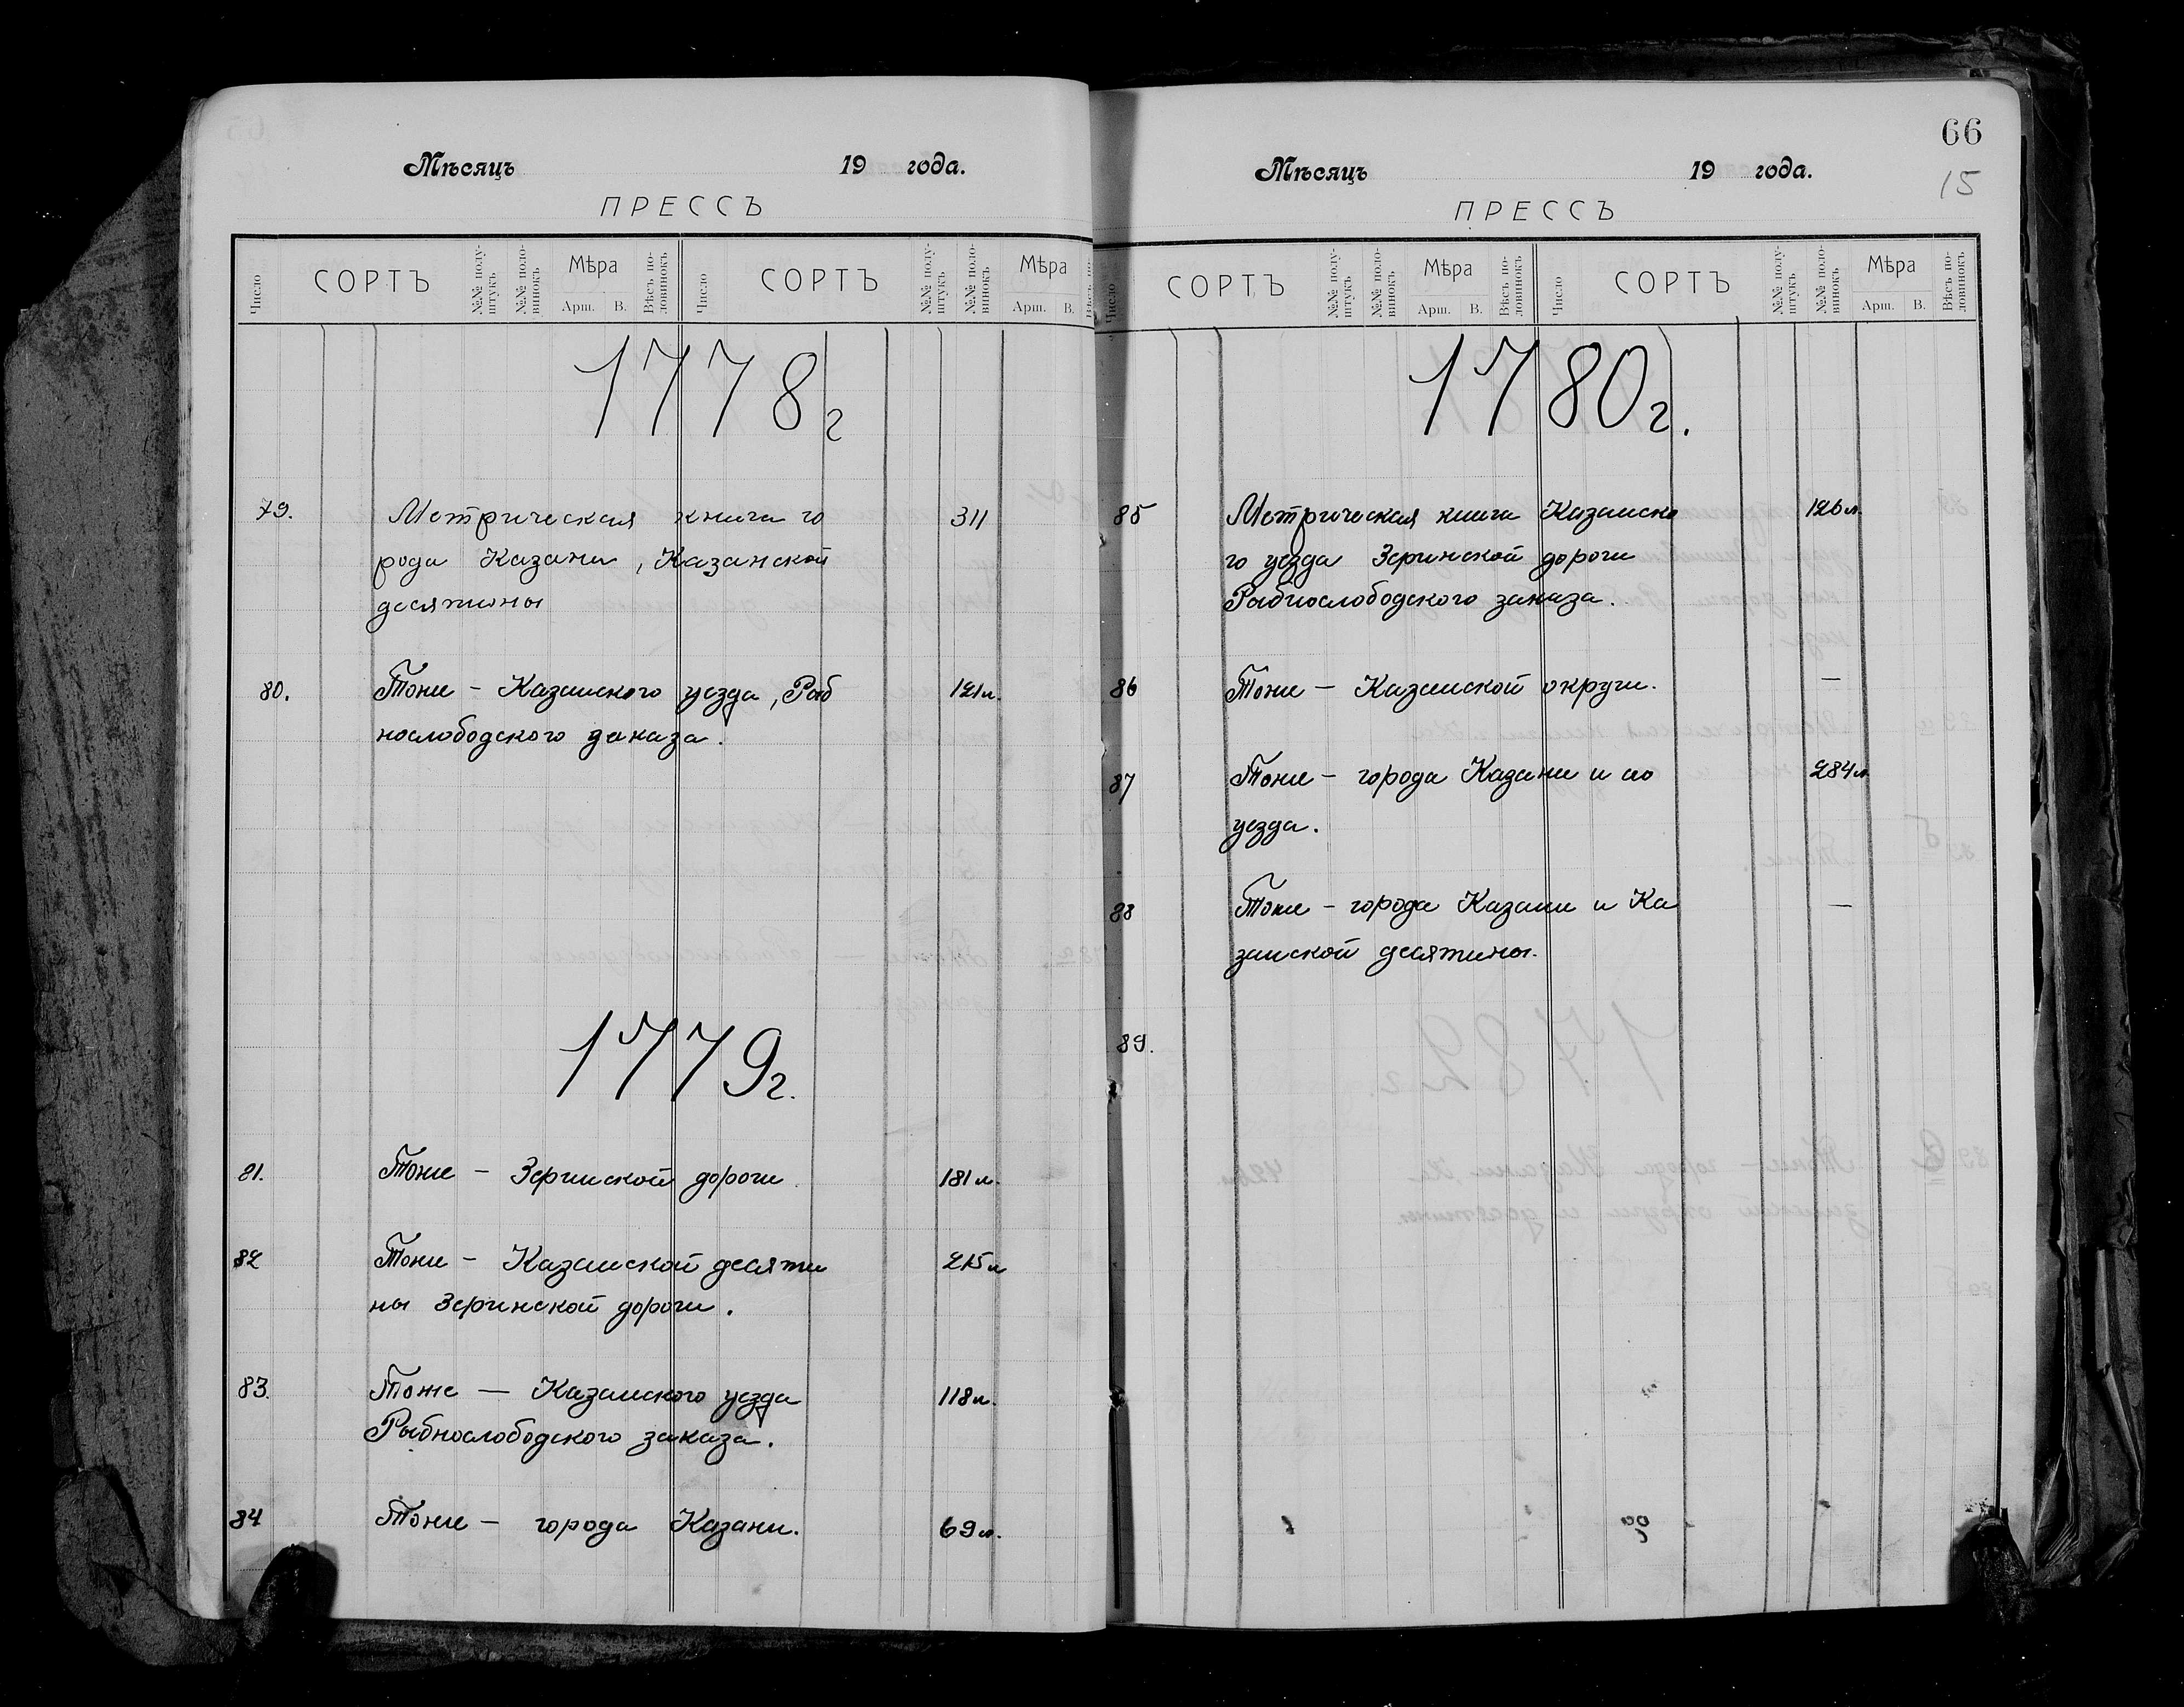 Мѣсяцъ 19 года.
ПРЕССЪ
Число СОРТЪ №№ полу-штукъ №№ поло-винокъ Мѣра Арш. В. Вѣсъ по-ловинокъ Число СОРТЪ №№ полу-штукъ №№ поло-винокъ Мѣра Арш. В.
1778 г
79. Метрическая книга го 311
рода Казани, Казанской
десятины
80. Тоже - Казанского уезда, Рыб 121 л.
нослободского заказа.
1779 г.
81. Тоже - Зерииской дороги 181 л.
82 Тоже - Казанской десяти 215 л
ны Зеринской дороги.
83. Тоже - Казанского уезда 118 л.
Рыбнослободского заказа.
84 Тоже - города Казани. 69 л.
66
15
Мѣсяцъ 19 года.
ПРЕССЪ
Число СОРТЪ №№ полу-штукъ №№ поло-винокъ Мѣра Арш. В. Вѣсъ по-ловинокъ Число СОРТЪ №№ полу-штукъ №№ поло-винокъ Мѣра Арш. В. Вѣсъ по-ловинокъ
1780 г.
85 Метрическая книга Казанско 126 л.
го уезда Зеринской дороги
Рыбнослободского заказа.
86 Тоже - Казанской округи. —
87 Тоже - города Казани и ио 284 л
уезда.
88 Тоже - города Казани и Ка —
занской десятины.
89.